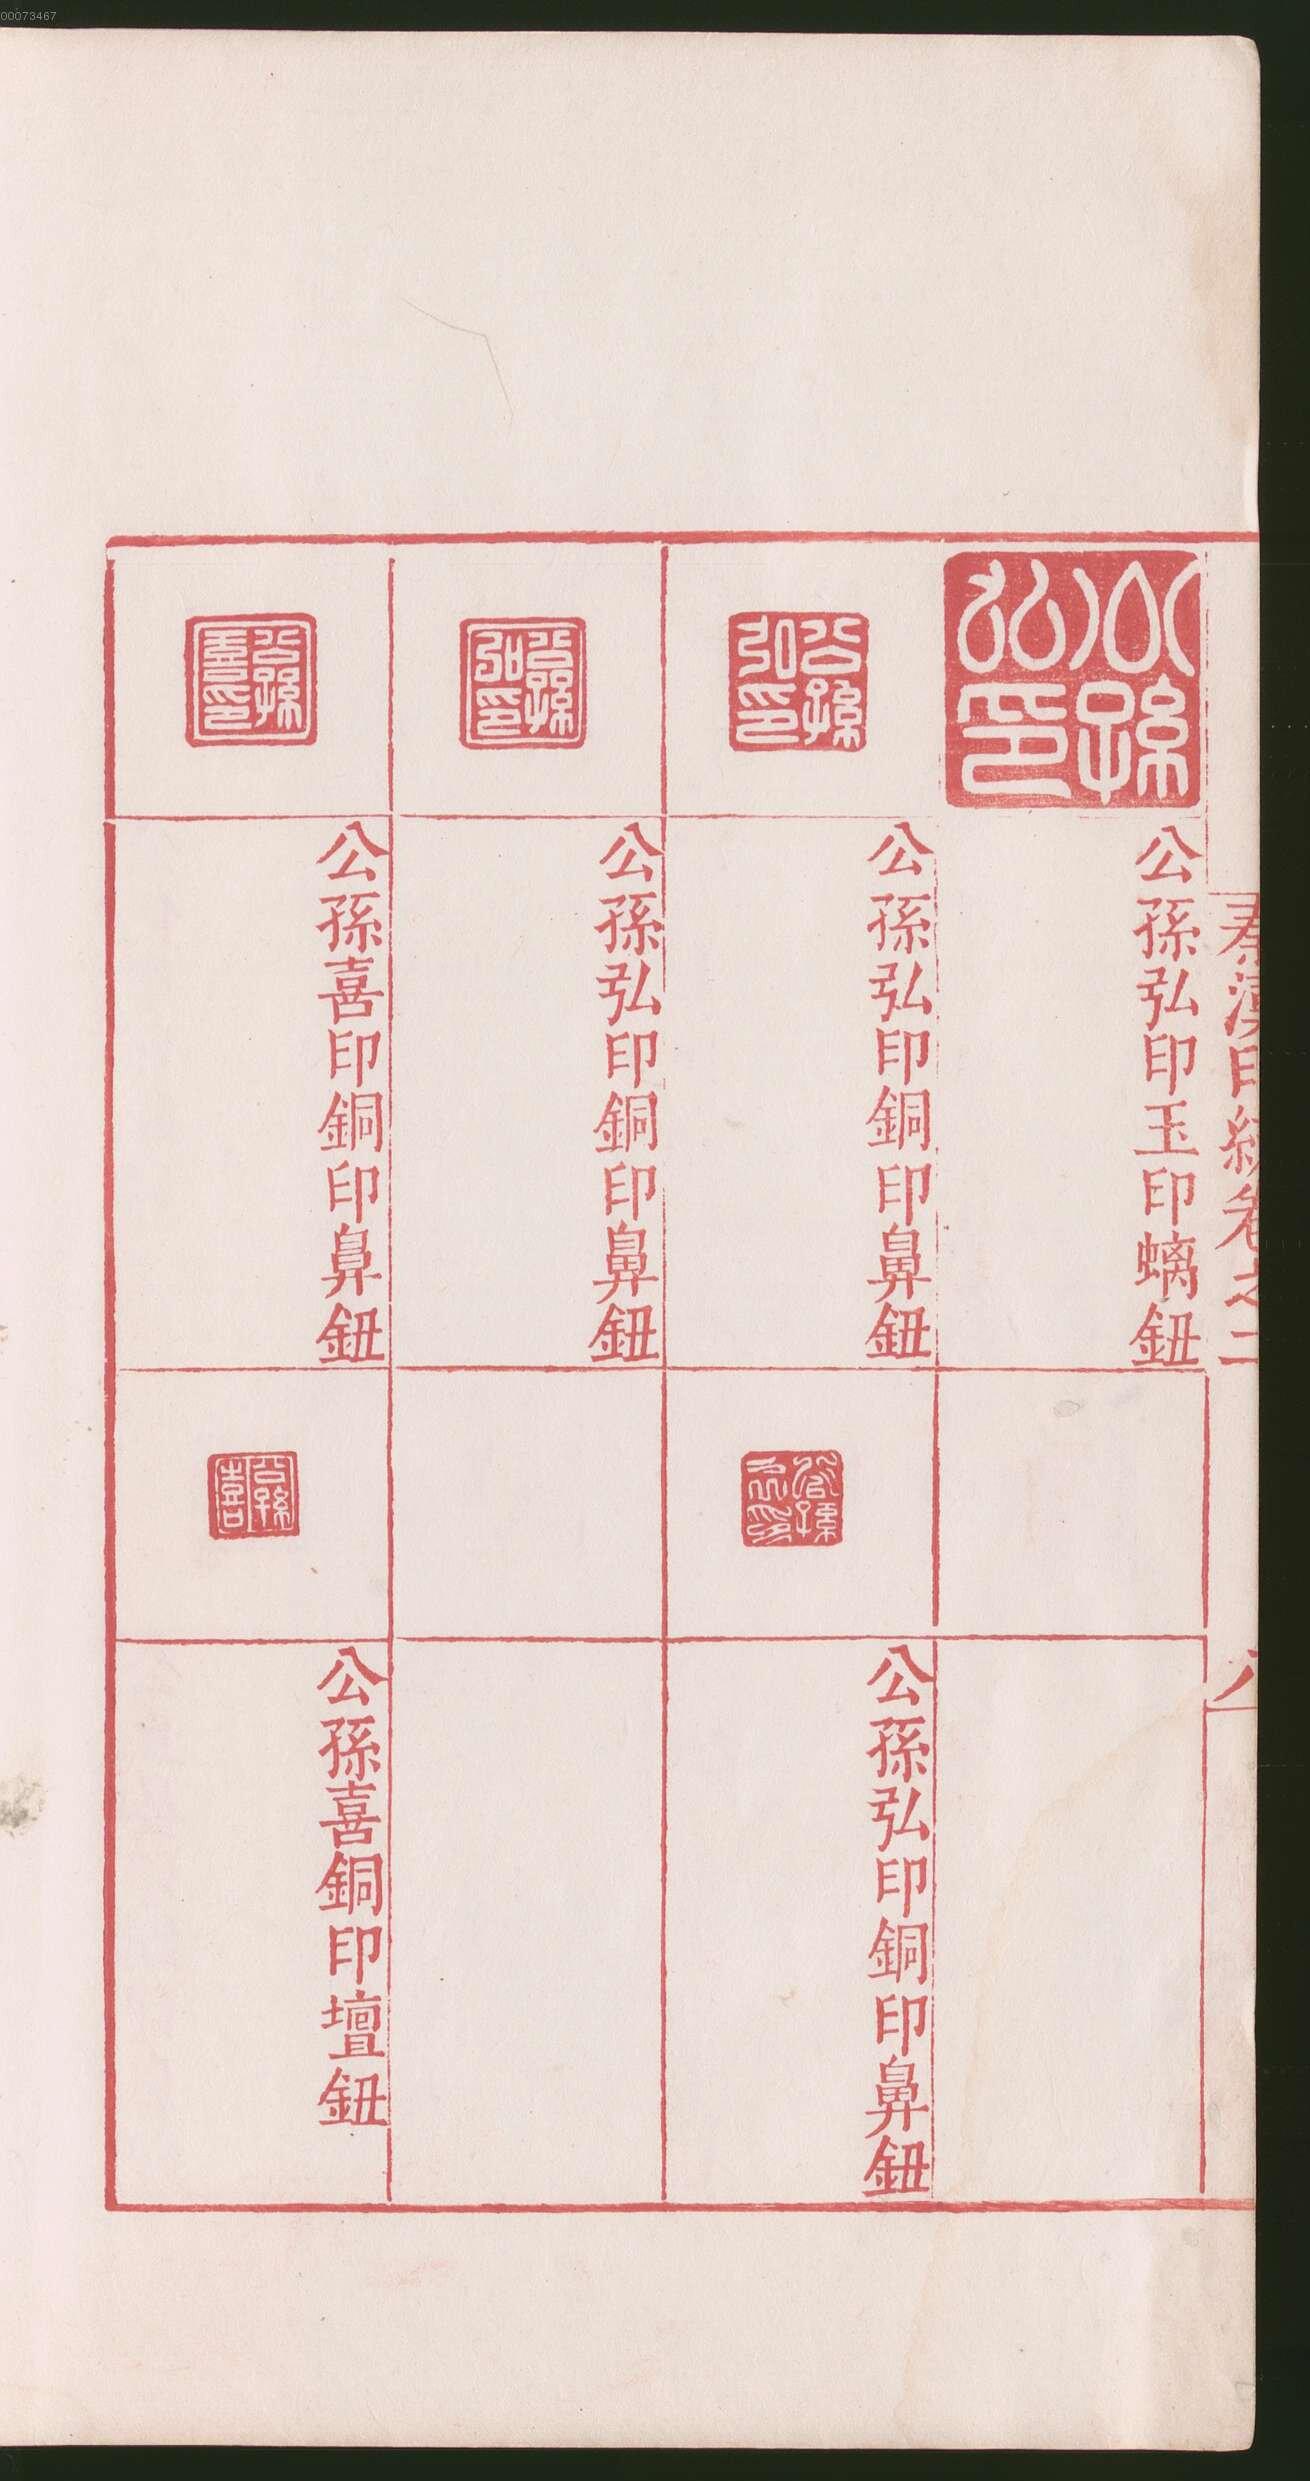 00073467
秦漢印統卷之二
八
公孫弘印
公孫弘印玉印螭鈕
公孫弘印
公孫弘印銅印鼻鈕
公孫弘印
公孫弘印銅印鼻鈕
公孫弘印
公孫弘印銅印鼻鈕
公孫喜印
公孫喜印銅印鼻鈕
公孫喜
公孫喜銅印壇鈕